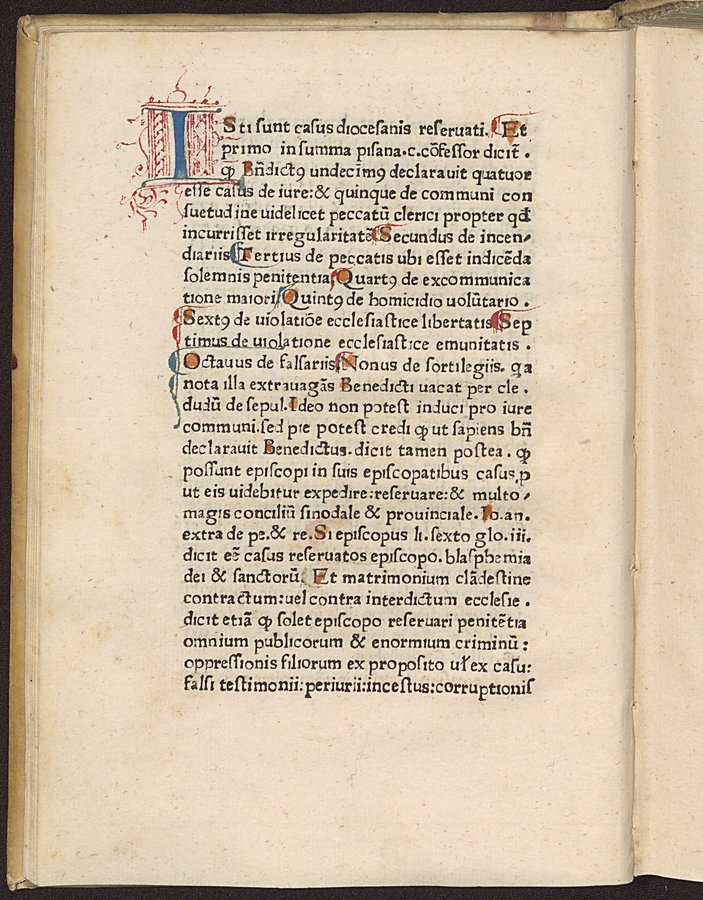 ISti sunt casus diocesanis reseruati. Et
primo in summa pisana.c.cōfessor dicit .
ꝙ Bn̄dictꝰ undecimꝰ declarauit quatuor
esse casus de iure:& quinque de communi con
suetudine uidelicet peccatū clerici propter qd̄
incurrisset irregularitatē Secundus de incen⸗
diariis Tertius de peccatis ubi esset indicēda
solemnis penitentia Quartꝰ de excommunica
tione maiori Quintꝰ de homicidio uolūtario .
Sextꝰ de uiolatiōe ecclesiastice libertatis Sep
timus de uiolatione ecclesiastice emunitatis .
Octauus de falsariis Nonus de sortilegiis. qa
nota illa extrauagās Benedicti uacat per cle .
dudū de sepul. Ideo non potest induci pro iure
communi.sed pie potest credi ꝙ ut sapiens bn̄
declarauit Benedictus. dicit tamen postea . ꝙ
possunt episcopi in suis episcopatibus casus,p
ut eis uidebitur expedire:reseruare:& multo⸗
magis conciliū sinodale & prouinciale. Io.an.
extra de pe.& re. Si episcopus li.sexto glo.iii.
dicit eē casus reseruatos episcopo.blasphemia
dei & sanctorū. Et matrimonium clādestine
contractum:uel contra interdictum ecclesie .
dicit etiā ꝙ solet episcopo reseruari penitētia
omnium publicorum & enormium criminū :
oppressionis filiorum ex proposito uł ex casu:
falsi testimonii:periurii:incestus:corruptionis